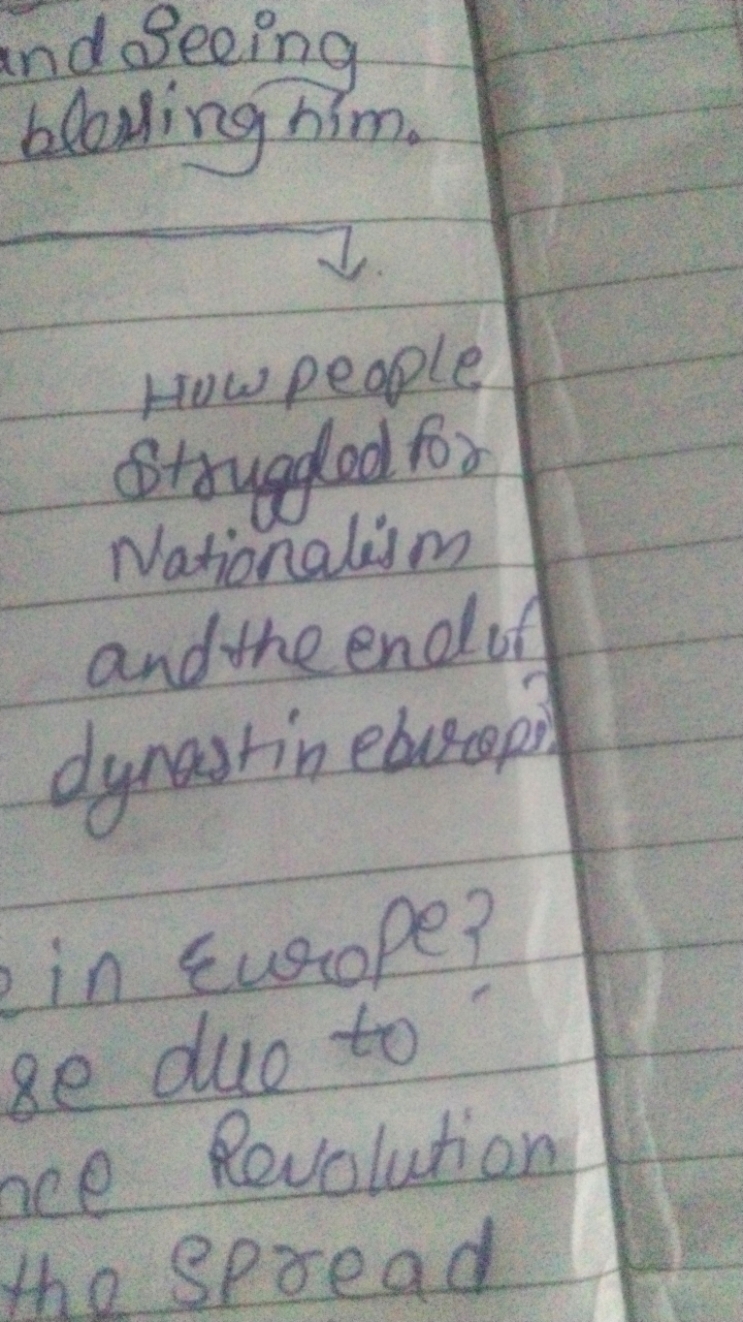 and Seeing
blessing him.
How people
Struggled for
Nationalism
and the end of
dynast in
in Europe?
se due to
nce Revolution
the spread